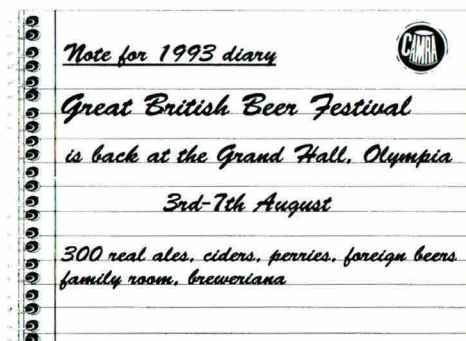 Note for 1993 diary
CAMRA
Great British Beer Festival
is back at the Grand Hall, Olympia
3rd-7th August
300 real ales, ciders, perries, foreign beers
family room, breweriana